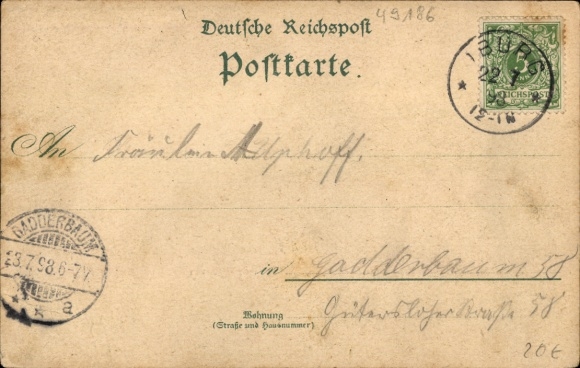 49186
Deutsche Reichspost
Postkarte.
IBURG
22 7
98
12-1N
5
REICHSPOST
An Fräulein A Uphoff.
GADDERBAUM
23.7.98.6-7V.
* * a
in Gadderbaum 58
Wohnung
(Straße und Hausnummer)
Gütersloher Straße 58
20€